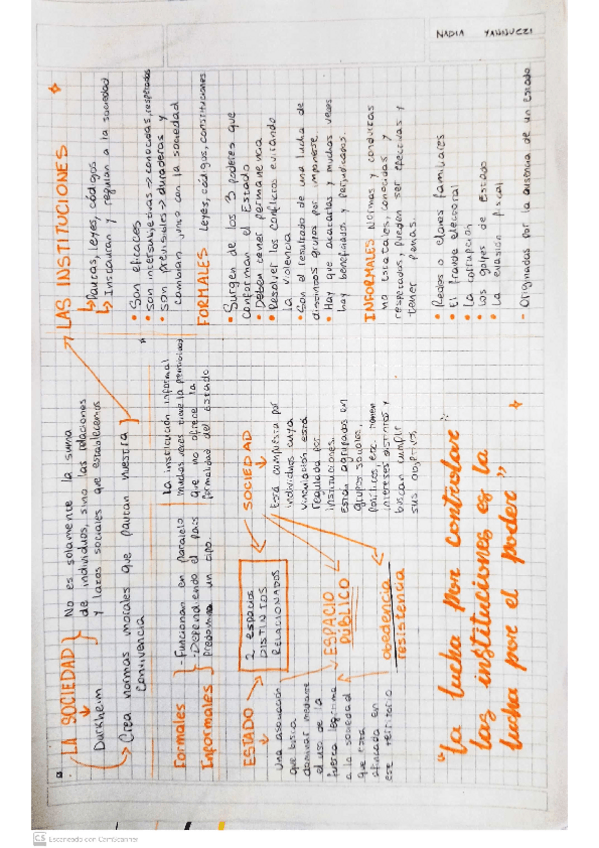 NADIA YANNUZZI
LA SOCIEDAD
Durkheim
No es solamente la suma
de individuos, sino las relaciones
y lazos sociales que establecemos
Crea normas morales que pautan nuestra
convivencia
Formales
Informales
- Funcionan en paralelo
- Dependiendo el país
predomina un tipo.
La institución informal
muchas veces tiene la
que no ofrece la
formalidad del estado
ESTADO
Una asociación
que busca
dominar mediante
el uso de la
fuerza legítima
a la sociedad
que está
afincada en
ese territorio
2 espacios
DISTINTOS
RELACIONADOS
ESPACIO
PÚBLICO
obediencia
resistencia
SOCIEDAD
Está compuesta por
individuos cuya
vinculación está
regulada por
instituciones.
están agrupados en
grupos sociales,
políticos, etc. tienen
intereses distintos y
buscan cumplir
sus objetivos.
"la lucha por controlar
las instituciones es la
lucha por el poder"
LAS INSTITUCIONES
Pautas, leyes, códigos
Instauran y regulan a la sociedad
• Son eficaces
• son intersubjetivas → conocidas, respetadas
• son previsibles → duraderas y
cambian junto con la sociedad
FORMALES Leyes, códigos, constituciones
• Surgen de los 3 poderes que
conforman el Estado
• Deben tener permanencia
• Resolver los conflictos evitando
la violencia
• Son el resultado de una lucha de
distintos grupos por imponerse.
• Hay que acatarlas y muchas veces
hay beneficiados y perjudicados.
INFORMALES Normas y conductas
no estatales, conocidas y
respetadas, pueden ser efectivas y
tener penas.
• Redes o clanes familiares
• El fraude electoral
• La corrupción
• Los golpes de Estado
• La evasión fiscal
- Originadas por la ausencia de un estado
CS Escaneado con CamScanner